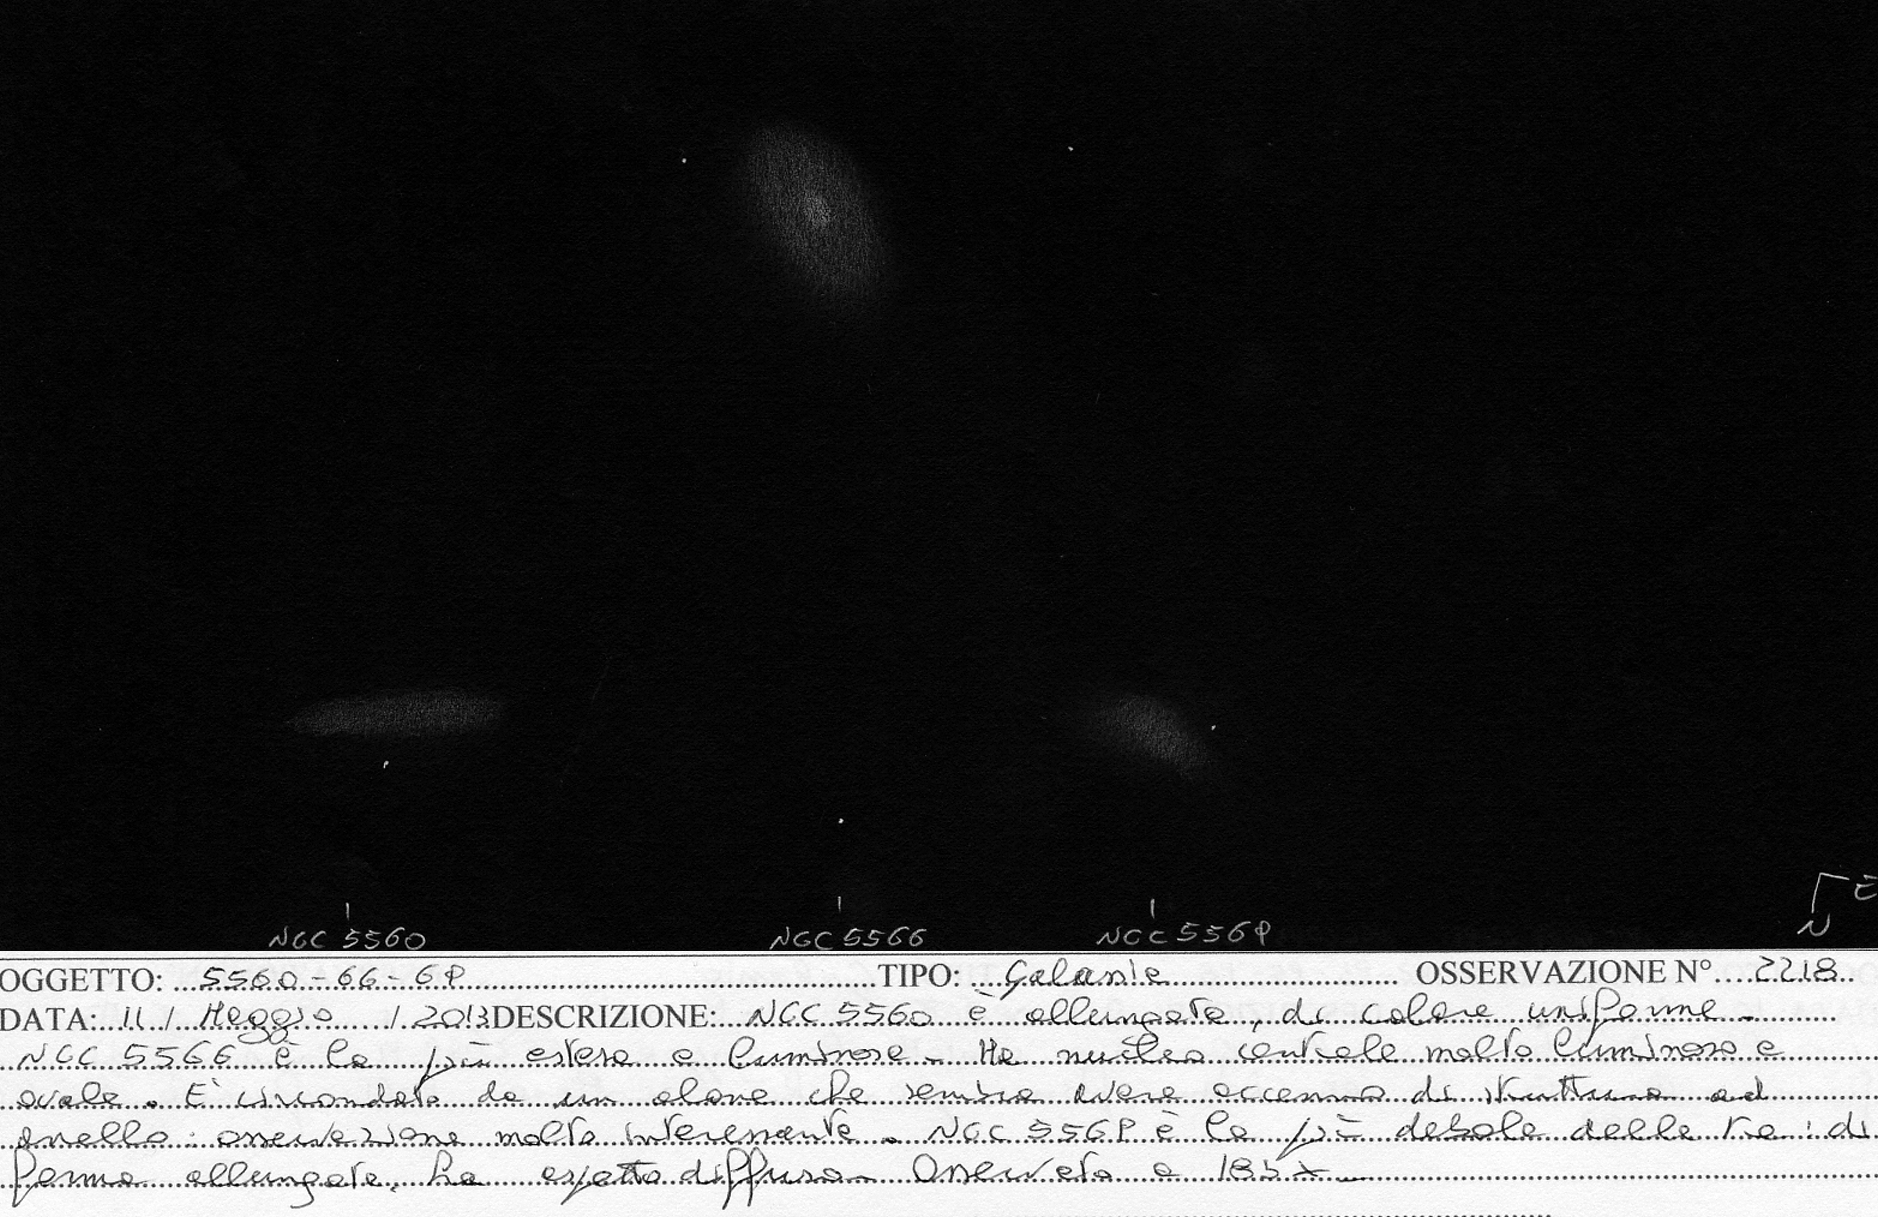 NGC 5560 NGC 5566 NGC 5569
E
N
OGGETTO: 5560-66-69 TIPO: Galassie OSSERVAZIONE N° 2218
DATA: 11 / Maggio / 2013 DESCRIZIONE: NGC 5560 è allungata, di colore uniforme.
NGC 5566 è la più estesa e luminosa. Ha nucleo centrale molto luminoso e
ovale. È circondato da un alone che sembra avere accenno di struttura ad
anello: osservazione molto interessante. NGC 5569 è la più debole delle tre: di
forma allungata, ha aspetto diffuso. Osservata a 185x